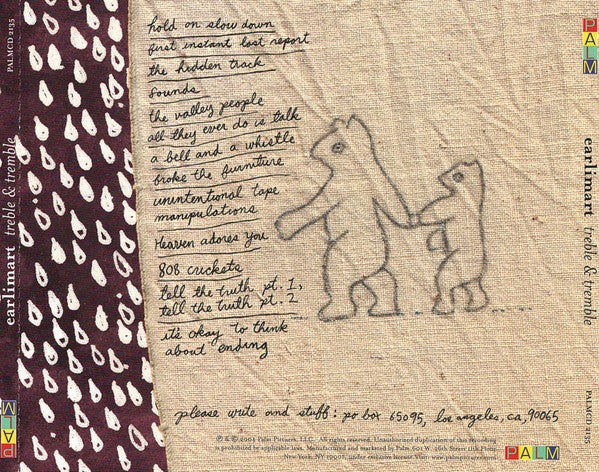 hold on slow down
first instant last report
the hidden track
sounds
the valley people
all they ever do is talk
a bell and a whistle
broke the furniture
unintentional tape
manipulations
Heaven adores you
808 crickets
tell the truth pt. 1,
tell the truth pt. 2
it's okay to think
about ending
please write and stuff: po box 65095, los angeles, ca, 90065
℗ & © 2004 Palm Pictures, LLC. All rights reserved. Unauthorized duplication of this recording
is prohibited by applicable laws. Manufactured and marketed by Palm, 601 W. 26th Street 11th Floor,
New York, NY 10001, under exclusive license. Visit: www.palmpictures.com
PALM
PALMCD 2135
earlimart treble & tremble
PALM
PALM
earlimart treble & tremble
PALMCD 2135